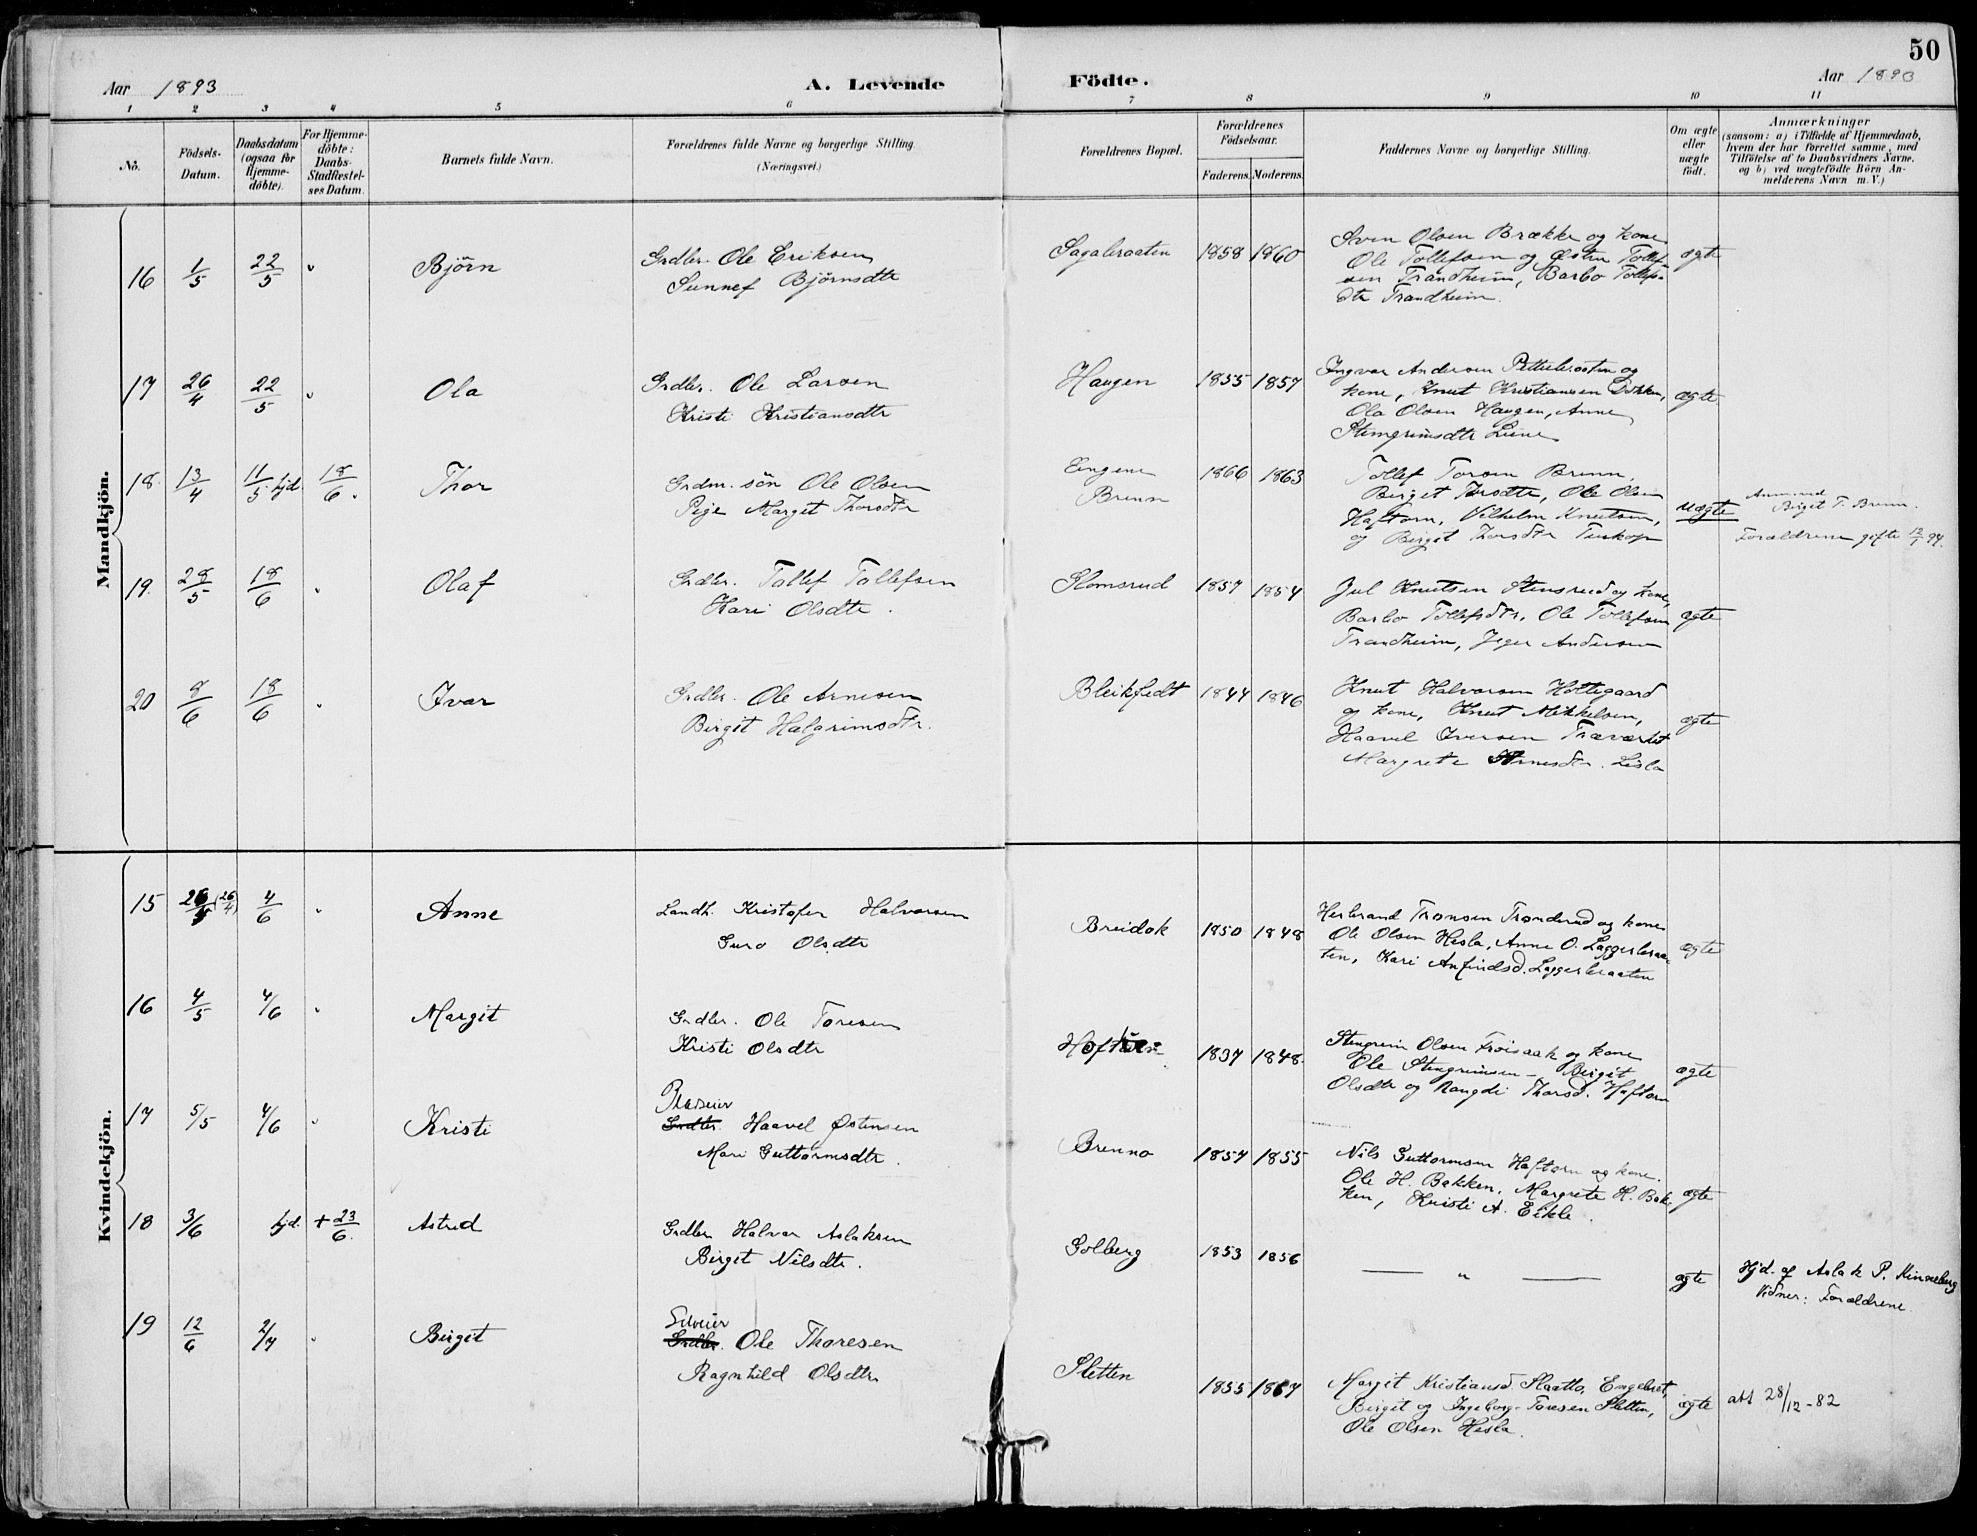 50
Aar 1893
A. Levende
Födte.
Aar 1893
1 2 3 4 5 6 7 8 9 10 11
No.
Födsels-
Datum.
Daabsdatum
(ogsaa for
Hjemme-
döbte).
For Hjemme-
döbte:
Daabs-
Stadfæstel-
ses Datum.
Barnets fulde Navn.
Forældrenes fulde Navne og borgerlige Stilling.
(Næringsvei.)
Forældrenes Bopæl.
Forældrenes
Födselsaar.
Faderens. Moderens.
Faddernes Navne og borgerlige Stilling.
Om ægte
eller
uægte
födt.
Anmærkninger
(saasom: a) i Tilfælde af Hjemmedaab,
hvem der har forrettet samme, med
Tilföielse af to Daabsvidners Navne.
og b) ved uægtefödte Börn An-
melderens Navn m. V.)
Mandkjön.
16 1/5 22/5 " Björn
Grdbr. Ole Eriksen
Sunnef Björnsdtr
Sagabraaten 1858 1860
Sven Olsen Brække og kone
Ole Tollefsen og Østen Tollef-
sen Trandheim, Barbo Tollefs-
dtr Trandheim.
ægte
17 26/4 22/5 " Ola
Grdbr. Ole Larsen
Kristi Kristiansdtr
Haugen 1855 1857
Ingvar Andersen
kone, Knut Kristiansen Dokken,
Ola Olsen Haugen, Anne
Stengrimsdtr
ægte
18. 13/4 11/5 hjd. 18/6. Thor
Grdm. sön Ole Olsen
Pige Marget Thorsdtr
Brenn 1866 1863
Tollef Torsen Brenn,
Birget Torsdtr, Ole Olsen
Haftorn, Vilhelm Knutsen,
og Birgit Thorsdtr
uægte
Birgit T. Brenn.
Forældrene gifte 12/1 94.
19. 28/5 18/6 " Olaf
Grdbr. Tollef Tollefsen
Kari Olsdtr.
Glomsrud 1857 1854
Jul Knutsen Stensrud og kone,
Barbo Tollefsdtr, Ole Tollefsen
Trandheim, Jeger Andersen
ægte
20 8/6 18/6 " Ivar
Grdbr. Ole Arnesen
Birgit Halgrimsdtr.
Bleikfedt 1844 1846
Knut Halvorsen Holtegaard
og kone, Knut Mikkelsen,
Haavel Iversen
Margrete Arnesdtr. Lisla
ægte
Kvindekjön.
15 26/5 (26/4) 4/6 " Anne
Landh. Kristofer Halvorsen
Guro Olsdtr
Breidok 1850 1848
Herbrand Tronsen Tronderud og kone
Ole Olsen Hesla, Anne O. Laggerbraa-
ten, Kari Anfindsd. Laggerbraaten
ægte
16 4/5 4/6 " Margit
Grdbr. Ole Toresen
Kristi Olsdtr
Haftorn 1837 1848.
Stengrim Olsen Froisaak og kone
Ole Stengrimsen – Birgit
Olsdtr og Rangdi Thorsd. Haftorn
ægte
17 5/5 4/6 " Kristi
Pladseier
Grdbr. Haavel Østensen
Mari Guttormsdtr.
Brenno 1857 1855
Nils Guttormsen Haftorn og kone.
Ole H. Bakken, Margrete H. Bak-
ken, Kristi A. Eikle.
ægte
18 3/6 hjd. + 23/6. Astrid
Grdbr Halvor Aslaksen
Birget Nilsdtr.
Golberg 1853 1856
— " —
ægte
Hjd. af Aslak P. Kinneberg
Vidner: Forældrene.
19 12/6 2/7 " Birget
Selveier
Grdbr. Ole Thoresen
Ragnhild Olsdtr
Sletten 1855 1867
Margit Kristiansd. Slaatto, Engebret,
Birget og Ingeborg Toresen Sletten,
Ole Olsen Hesla.
ægte
att 28/12 - 82